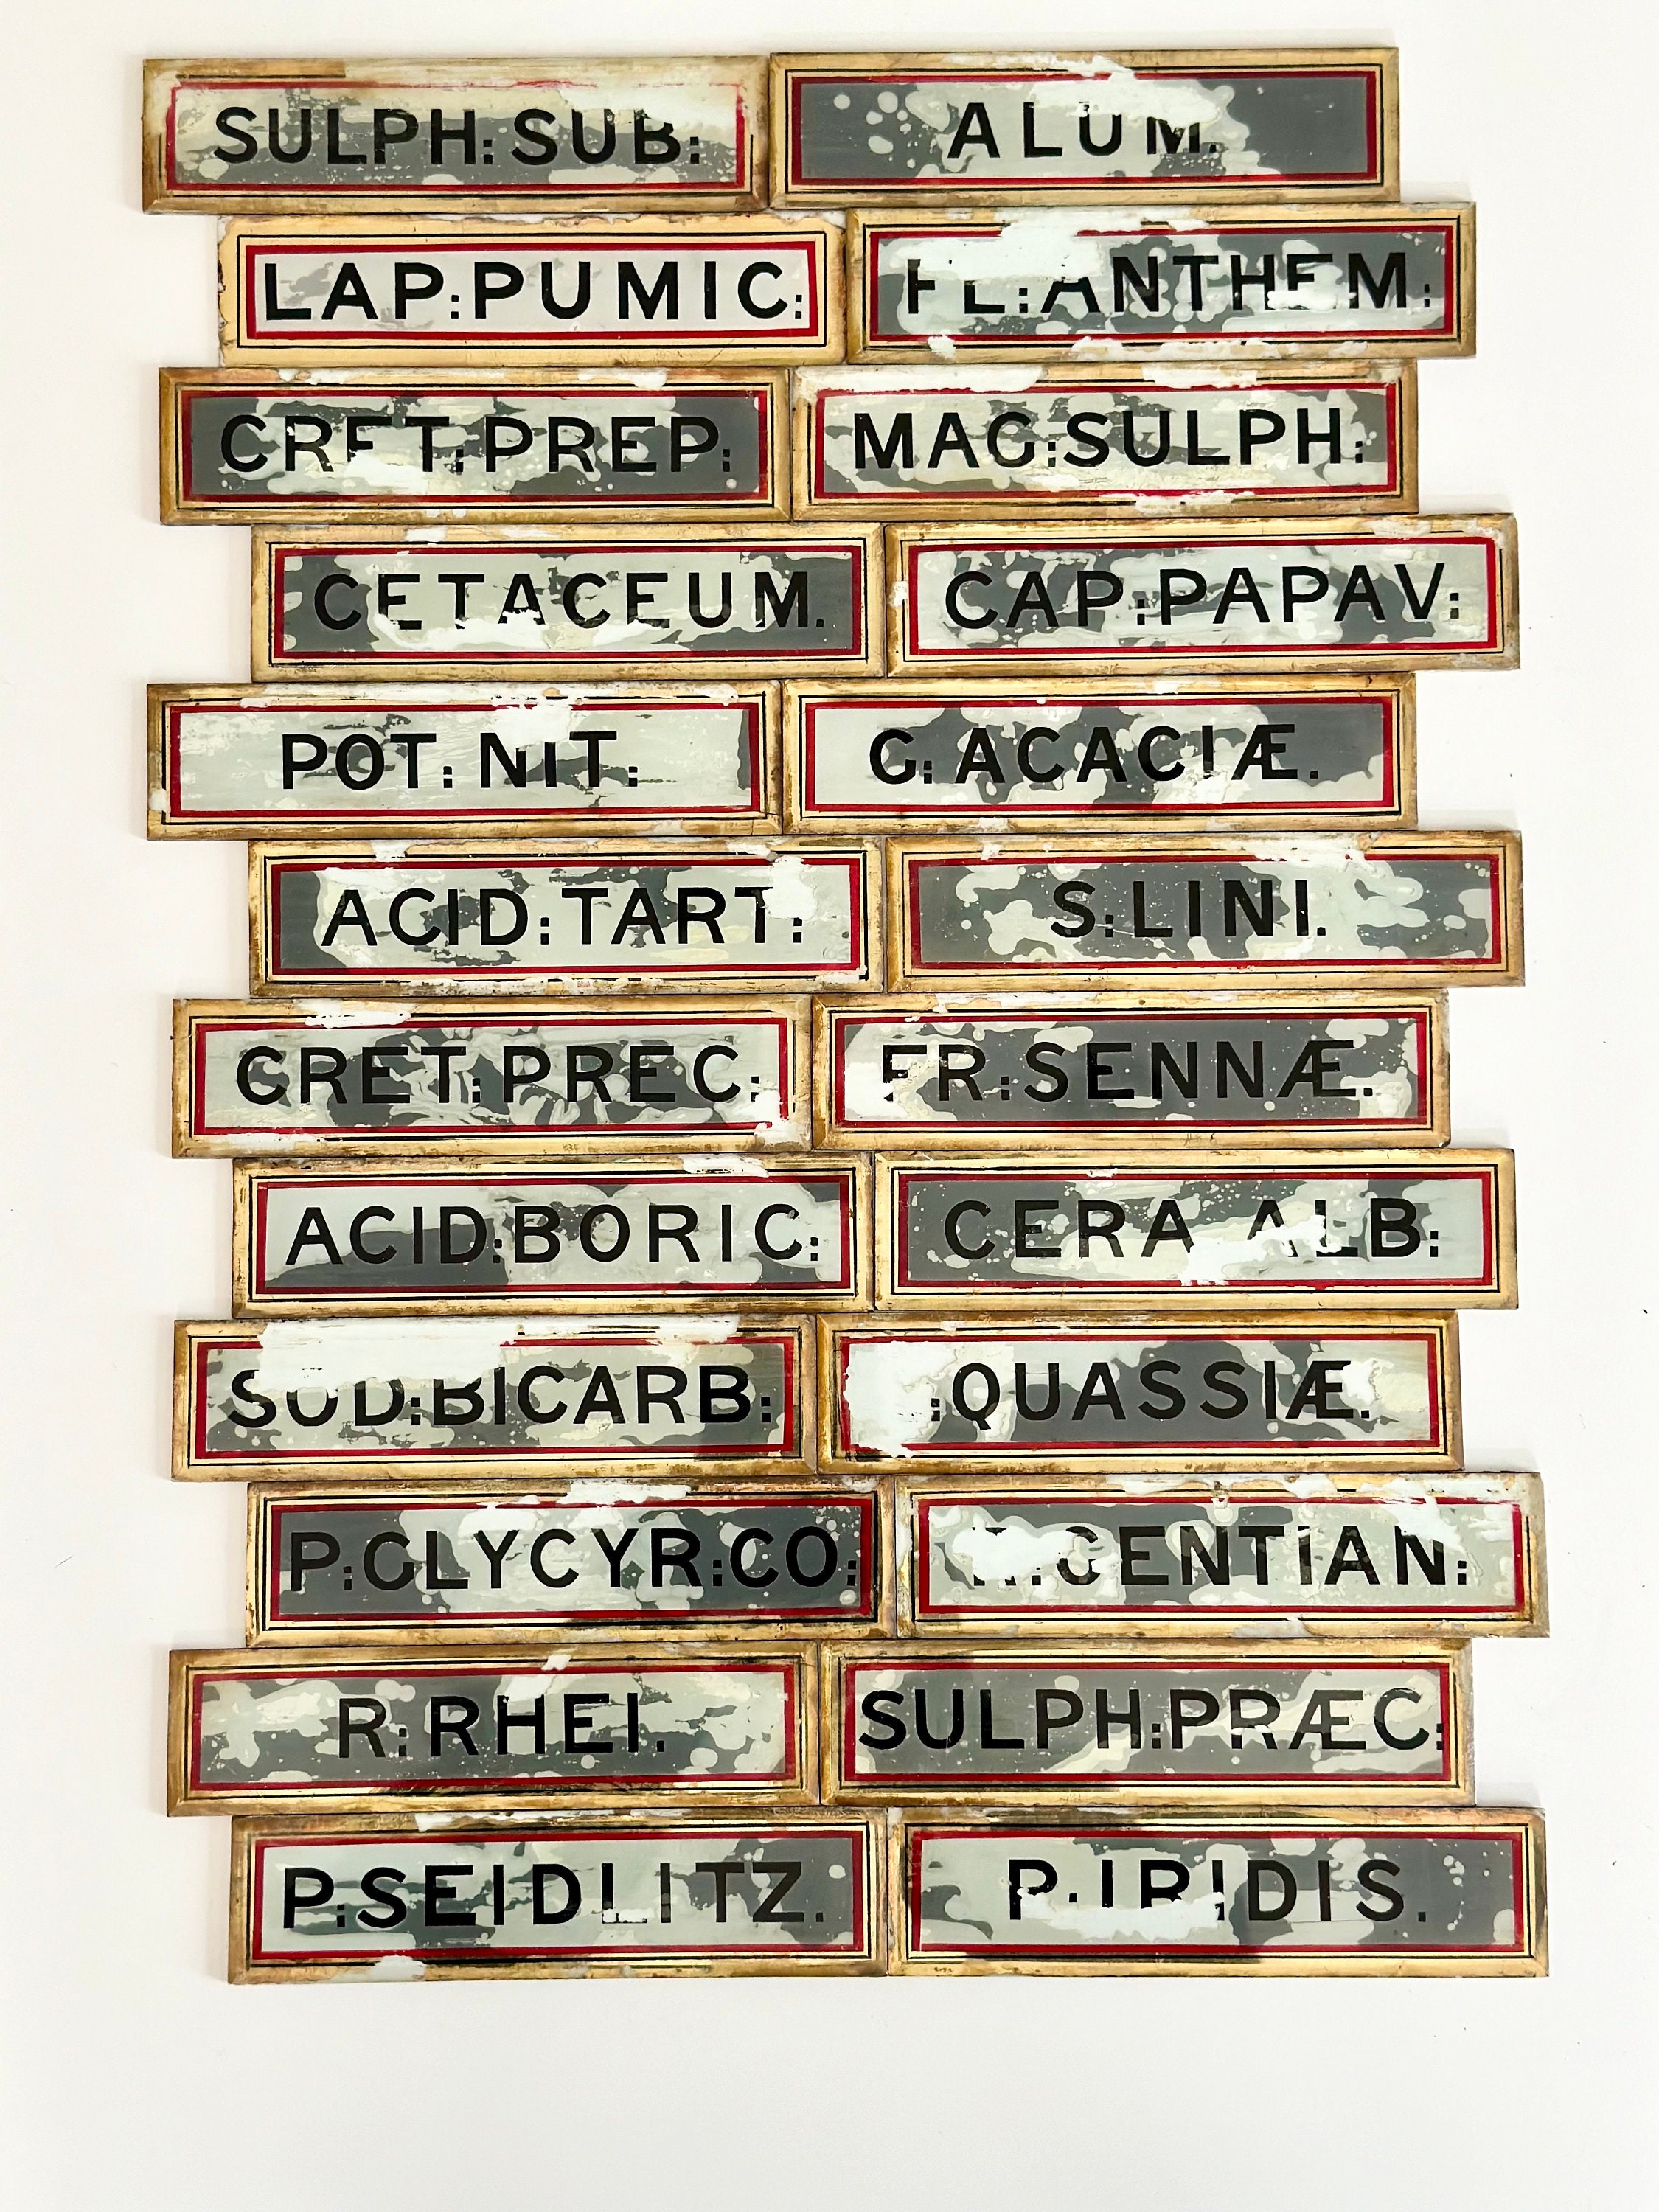 SULPH:SUB:
ALUM.
LAP:PUMIC:
FL:ANTHEM:
CRET:PREP:
MAG:SULPH:
CETACEUM.
CAP:PAPAV:
POT:NIT:
G:ACACIÆ.
ACID:TART:
S:LINI.
CRET:PREC:
FR:SENNÆ.
ACID:BORIC:
CERA ALB:
SOD:BICARB:
:QUASSIÆ.
P:GLYCYR:CO:
GENTIAN:
R:RHEI.
SULPH:PRÆC:
P:SEIDLITZ.
P:IRIDIS.